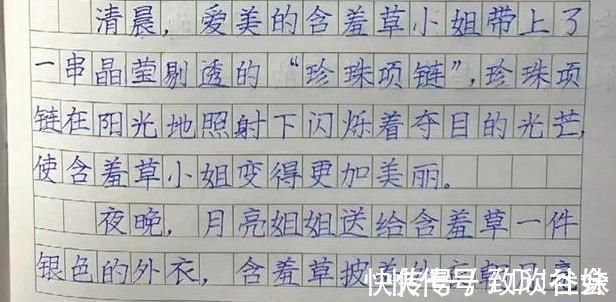 清晨，爱美的含羞草小姐带上了
一串晶莹剔透的“珍珠项链”，珍珠项
链在阳光地照射下闪烁着夺目的光芒，
使含羞草小姐变得更加美丽。
夜晚，月亮姐姐送给含羞草一件
银色的外衣，含羞草披着外衣
快传号